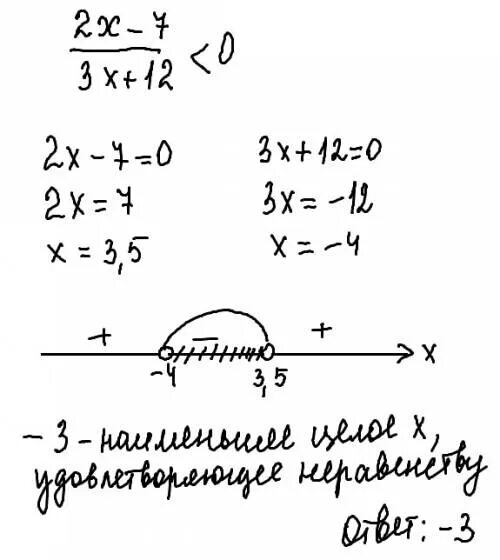 2x - 7
3x + 12 < 0
2x - 7 = 0
2x = 7
x = 3,5
3x + 12 = 0
3x = -12
x = -4
+ - + x
-4 3,5
- 3 - наименьшее целое x,
удовлетворяющее неравенству
Ответ: -3